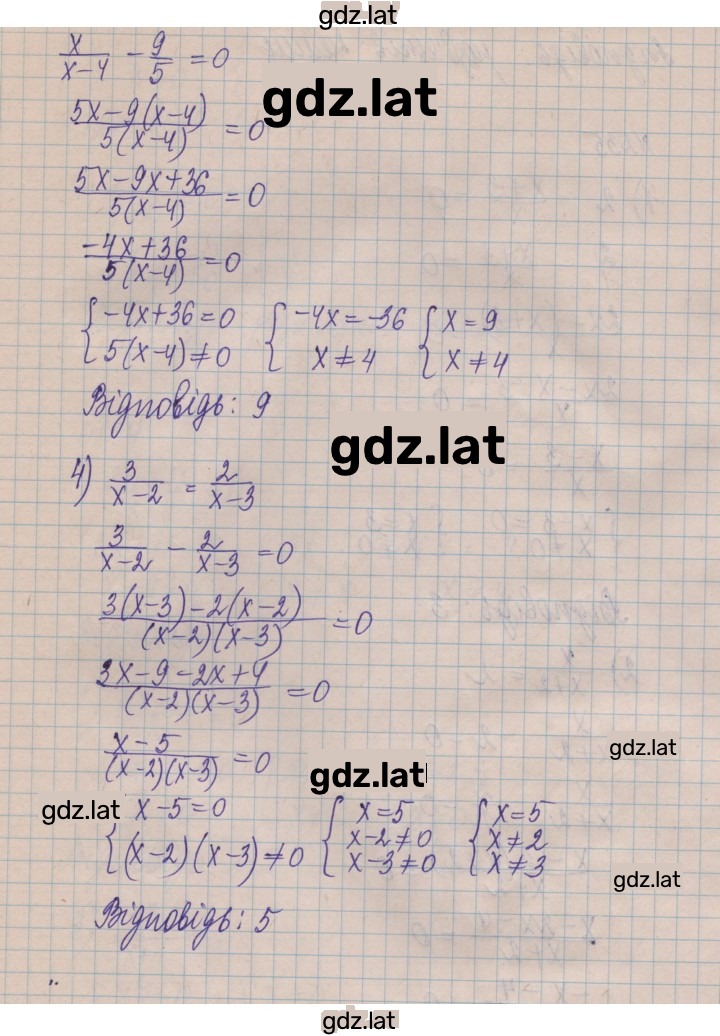 gdz.lat
x/(x-4) - 9/5 = 0
gdz.lat
(5x-9(x-4))/(5(x-4)) = 0
(5x-9x+36)/(5(x-4)) = 0
(-4x+36)/(5(x-4)) = 0
{ -4x+36=0 { -4x=-36 { x=9
5(x-4)≠0 x≠4 x≠4
Відповідь: 9
gdz.lat
4) 3/(x-2) = 2/(x-3)
3/(x-2) - 2/(x-3) = 0
(3(x-3)-2(x-2))/((x-2)(x-3)) = 0
(3x-9-2x+4)/((x-2)(x-3)) = 0
gdz.lat
(x-5)/((x-2)(x-3)) = 0
gdz.lat
gdz.lat
{ x-5=0 { x=5 { x=5
(x-2)(x-3)≠0 x-2≠0 x≠2
x-3≠0 x≠3
gdz.lat
Відповідь: 5
gdz.lat